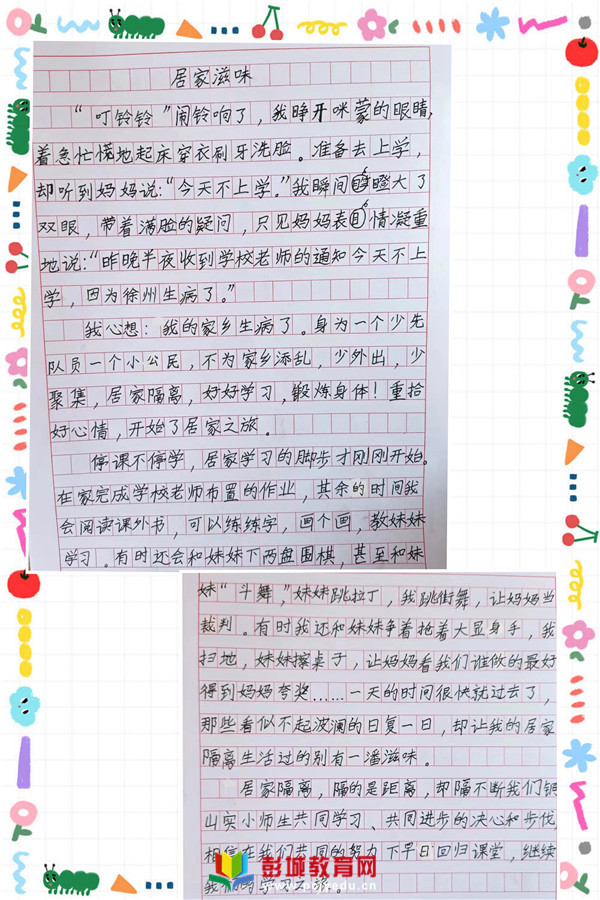 居家滋味
“叮铃铃”闹铃响了，我睁开咪蒙的眼睛，
着急忙慌地起床穿衣刷牙洗脸。准备去上学，
却听到妈妈说：“今天不上学。”我瞬间瞪大了
双眼，带着满脸的疑问，只见妈妈表情凝重
地说：“昨晚半夜收到学校老师的通知今天不上
学，因为徐州生病了。”
我心想：我的家乡生病了。身为一个少先
队员一个小公民，不为家乡添乱，少外出，少
聚集，居家隔离，好好学习，锻炼身体！重拾
好心情，开始了居家之旅。
停课不停学，居家学习的脚步才刚刚开始。
在家完成学校老师布置的作业，其余的时间我
会阅读课外书，可以练练字，画个画，教妹妹
学习。有时还会和妹妹下两盘围棋，甚至和妹
妹“斗舞，”妹妹跳拉丁，我跳街舞，让妈妈当
裁判。有时我还和妹妹争着抢着大显身手，我
扫地，妹妹擦桌子，让妈妈看我们谁做的最好
得到妈妈夸奖……一天的时间很快就过去了，
那些看似不起波澜的日复一日，却让我的居家
隔离生活过的别有一潘滋味。
居家隔离，隔的是距离，却隔不断我们铜
山实小师生共同学习、共同进步的决心和步伐，
相信在我们共同的努力下早日回归课堂，继续
我们的学习之旅。
彭城教育网